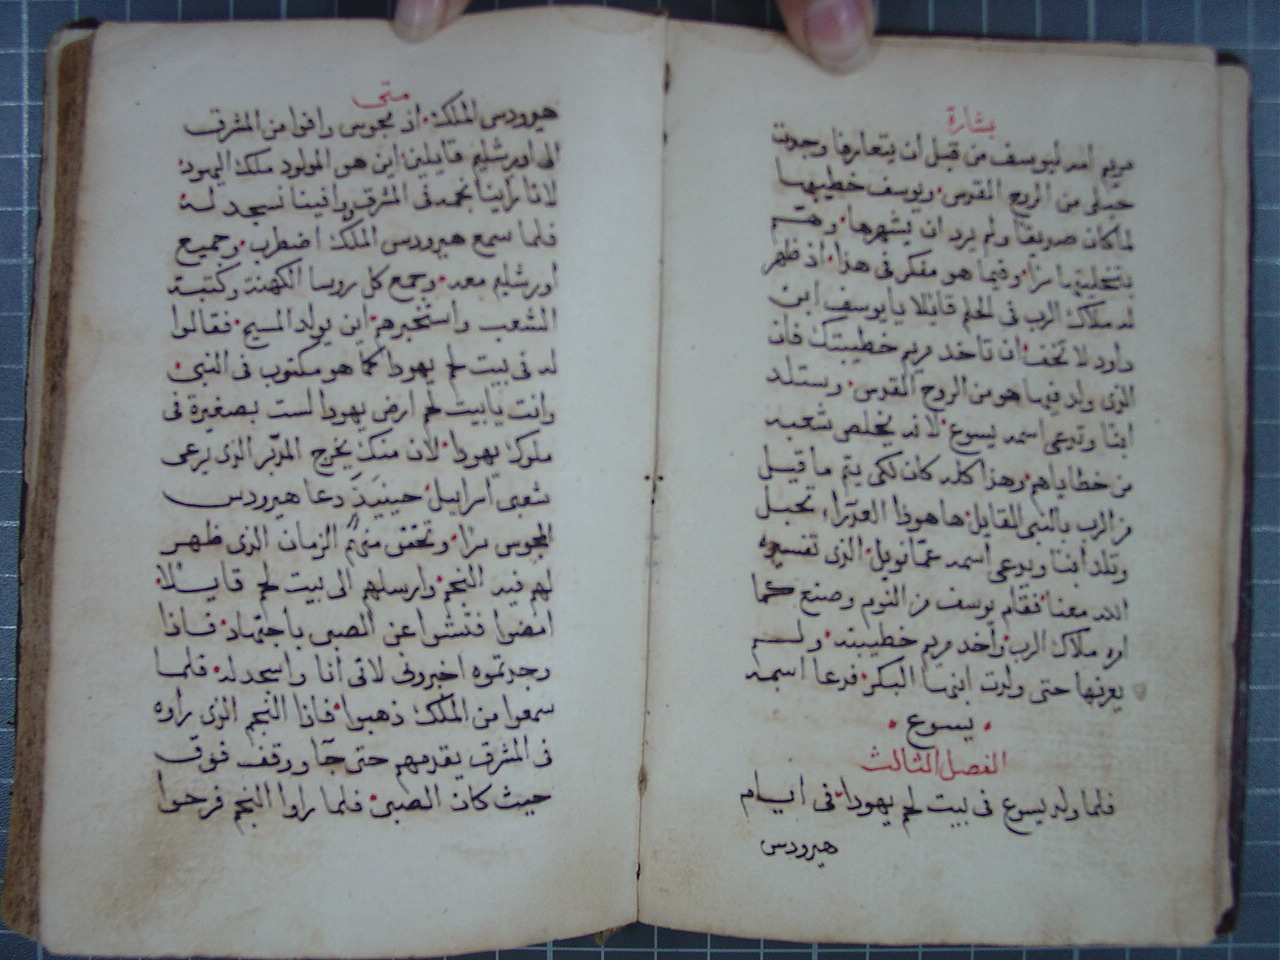 بشارة
مريم امه ليوسف من قبل ان يتعارفا وجدت
حبلى من الروح القدس ويوسف خطيبها
لما كان صديقا ولم يرد ان يشهرها وهم
بتخليتها سرا وفيما هو مفكر فى هذا اذ ظهر
له ملاك الرب فى الحلم قايلا يا يوسف ابن
داود لا تخف ان تاخد مريم خطيبتك فان
الذى ولد فيها هو من الروح القدس وستلد
ابنا وتدعى اسمه يسوع لانه يخلص شعبه
من خطاياهم وهذا كله كان لكى يتم ما قيل
من الرب بالنبى القايل ها هوذا العذراء تحبل
وتلد ابنا ويدعى اسمه عمانويل الذى تفسيره
الله معنا فقام يوسف من النوم وصنع كما
امره ملاك الرب واخد مريم خطيبته ولم
يعرفها حتى ولدت ابنها البكر فدعا اسمه
يسوع
الفصل الثالث
فلما ولد يسوع فى بيت لحم يهودا فى ايام
هيرودس
متى
هيرودس الملك اذ مجوس وافوا من المشرق
الى اورشليم قايلين اين هو المولود ملك اليهود
لاننا راينا نجمه فى المشرق ووافينا نسجد له
فلما سمع هيرودس الملك اضطرب وجميع
اورشليم معه وجمع كل روسا الكهنة وكتبة
الشعب واستخبرهم اين يولد المسيح فقالوا
له فى بيت لحم يهودا كما هو مكتوب فى النبى
وانت يا بيت لحم ارض يهودا لست بصغيرة فى
ملوك يهودا لان منك يخرج المدبر الذى يرعى
شعبى اسراييل حينيذ دعا هيرودس
المجوس سرا وتحقق منهم الزمان الذى ظهر
لهم فيه النجم وارسلهم الى بيت لحم قايلا
امضوا فتشوا عن الصبى باجتهاد فاذا
وجدتموه اخبرونى لاتى انا واسجد له فلما
سمعوا من الملك ذهبوا فاذا النجم الذى راوه
فى المشرق يقدمهم حتى جا ووقف فوق
حيث كان الصبى فلما راوا النجم فرحوا